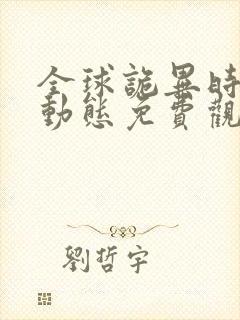 全球詭異時
動態免費觀
劉哲宇